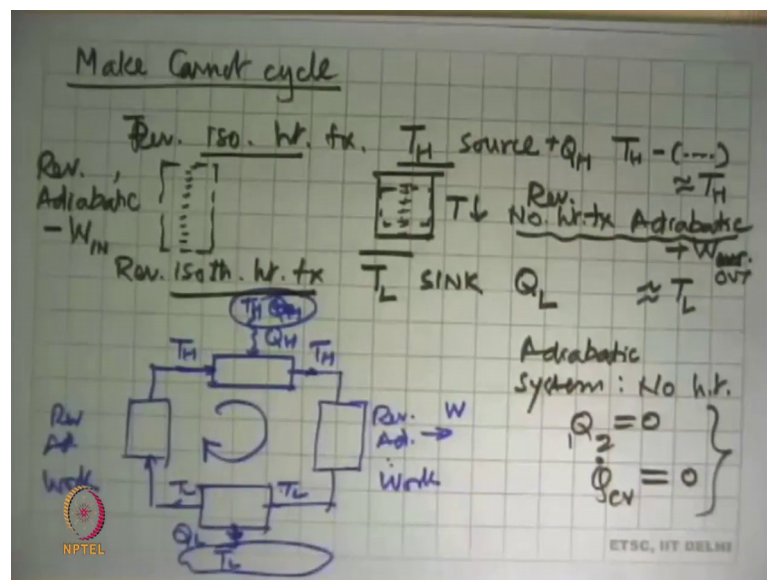 Make Carnot cycle
Rev. iso. ht. tx.
TH source + QH TH - (.....)
≈ TH
Rev.,
Adiabatic
- WIN
T↓
Rev.
No. ht. tx Adiabatic
→ W
OUT
Rev. isoth. ht. tx
TL SINK QL ≈ TL
TH QH
QH
TH TH
Rev
Ad.
Work
Rev.
Ad. → W
Work
TL TL
QL
TL
Adiabatic
System: No h.t.
1Q2 = 0
Q̇cv = 0
NPTEL
ETSC, IIT DELHI